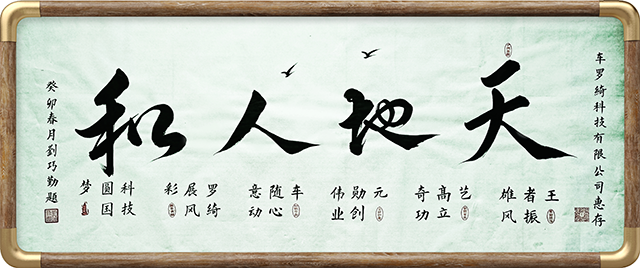 车罗绮科技有限公司惠存
天地人和
王者振雄风
艺高立奇功
元勋创伟业
车随心意动
罗绮展风彩
科技圆国梦
癸卯春月劉巧勤题